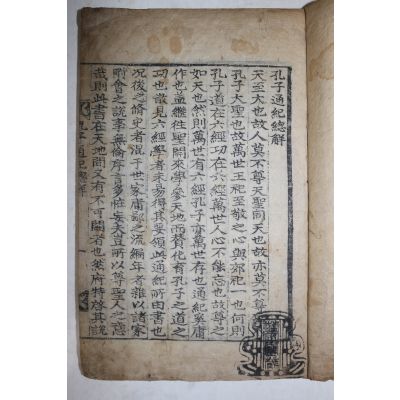 孔子通紀總解
天至大也故人莫不尊天聖同天也故亦莫不尊
孔子大聖也故萬世王祀至敬之心與郊祀一也何則
孔子道在六經功在六經萬世人心不能忘也故尊之
如天也然則萬世有六經孔子亦萬世存也通紀奚庸
作也孟繼往聖開來學參天地而贊化育孔子之道之
功也散見六經學者未易得其要領此通紀所由書也
況後之脩史者混于世家庸鄙之流編年者雜以諸家
附會之說事無倫序言多恠妄夫豈所以尊聖人之意
哉則此書在天地間又有不可闕者也然府特啓其說
孔子通紀總解
一